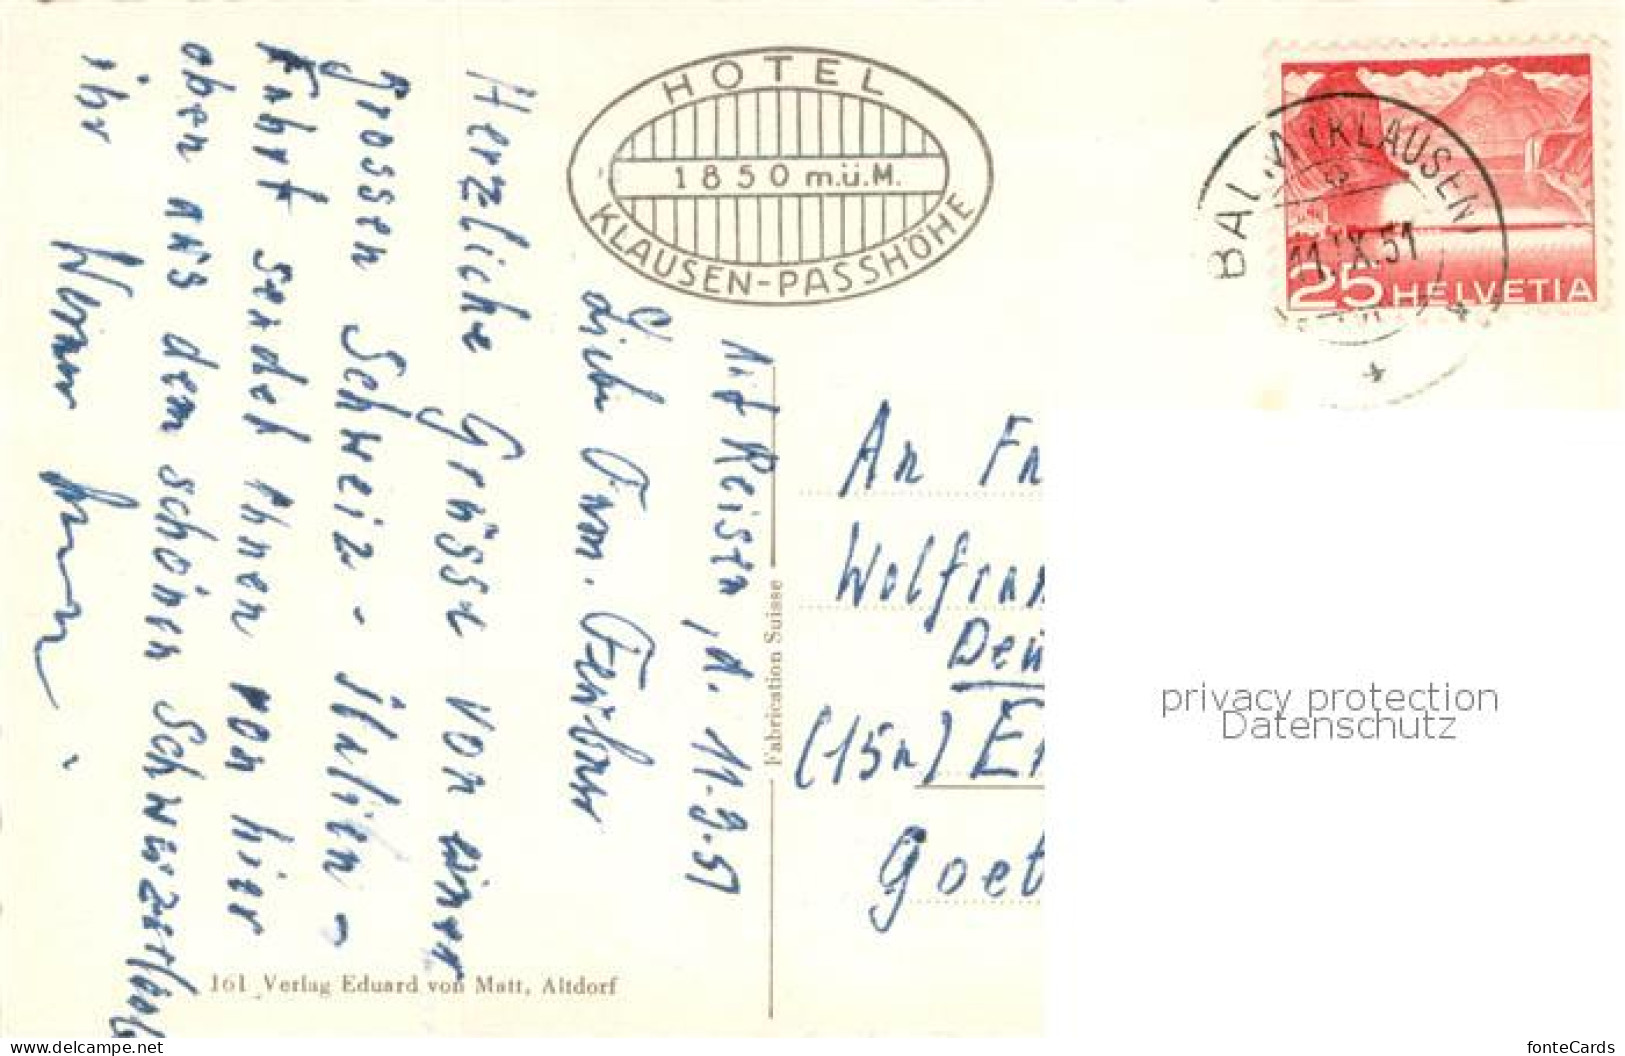 HOTEL
1850 m.ü.M.
KLAUSEN-PASSHÖHE
BALM (KLAUSEN)
11.IX.51
25 HELVETIA
Auf Reisen, d. 11.9.51
Liebe Frau
Herzliche Grüsse von einer
grossen Schweiz - Italien -
Fahrt sendet Ihnen von hier
oben aus dem schönen Schweizerland
ihr
An Fr
Wolfram
Deu
(15a) Er
Goet
Fabrication Suisse
161 Verlag Eduard von Matt, Altdorf
privacy protection
Datenschutz
www.delcampe.net
fonteCards